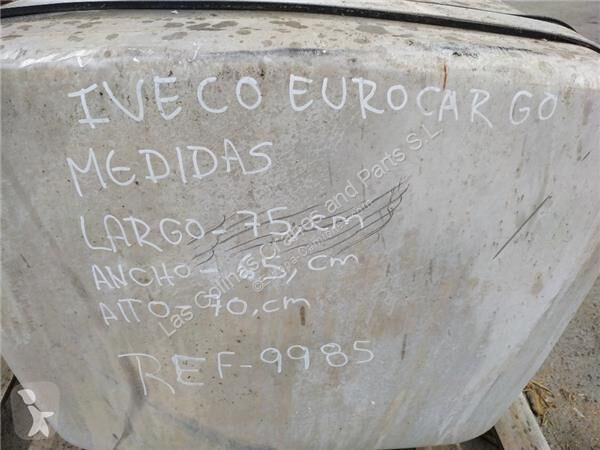 IVECO EUROCARGO
MEDIDAS
LARGO-75,cm
ANCHO-65,cm
ALTO-70,cm
REF-9985
Las Colinas Grabes and Parts S.L.